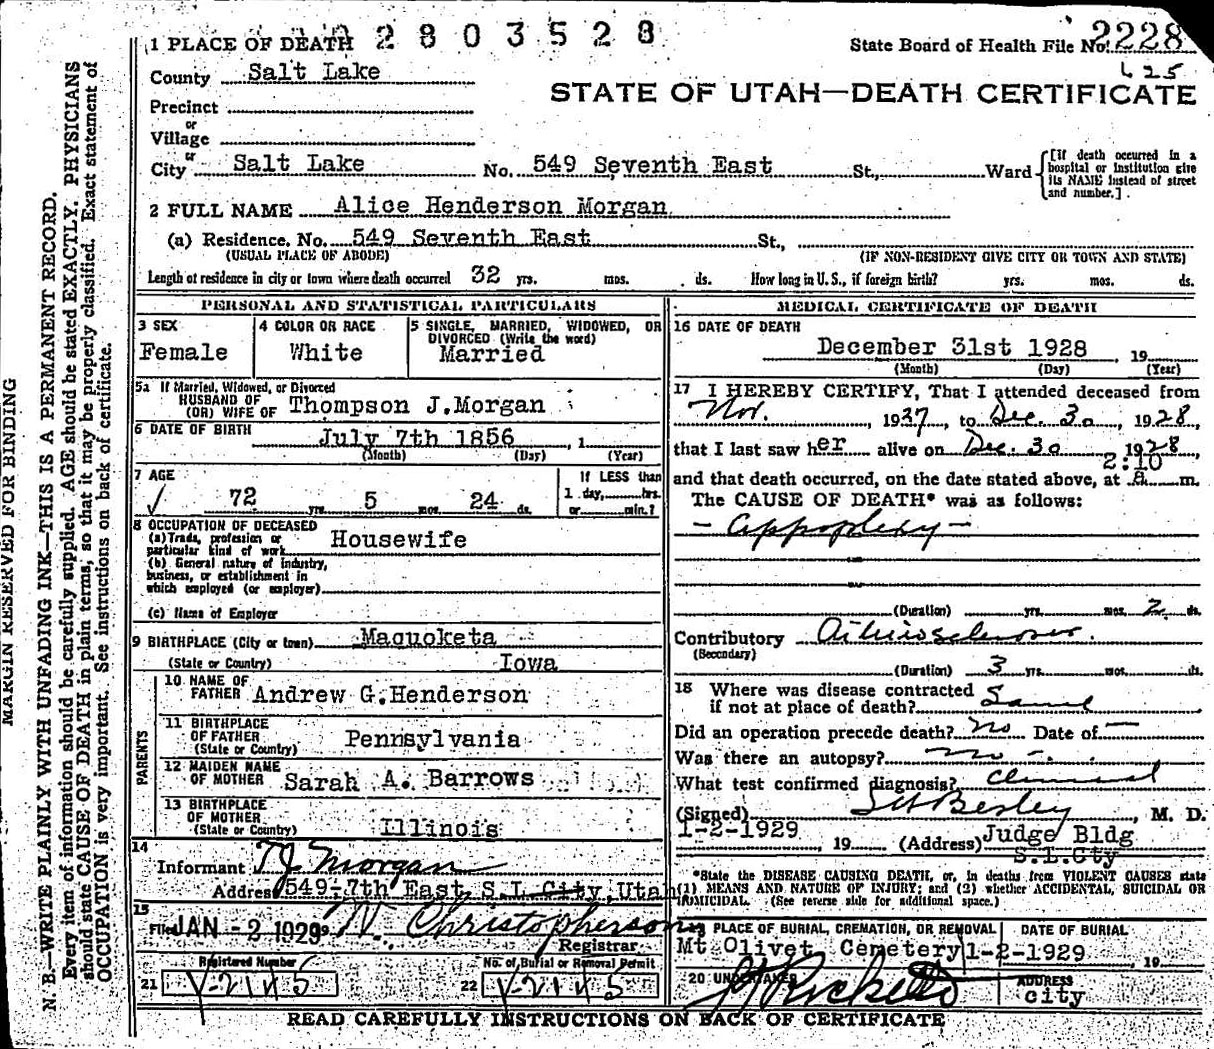 2803528
1 PLACE OF DEATH
State Board of Health File No. 2228
625
County Salt Lake
STATE OF UTAH—DEATH CERTIFICATE
Precinct
or
Village
or
City Salt Lake No. 549 Seventh East St., Ward
[If death occurred in a
hospital or institution give
its NAME instead of street
and number.]
2 FULL NAME Alice Henderson Morgan
(a) Residence. No. 549 Seventh East St.,
(USUAL PLACE OF ABODE) (IF NON-RESIDENT GIVE CITY OR TOWN AND STATE)
Length of residence in city or town where death occurred 32 yrs. mos. ds. How long in U.S., if foreign birth? yrs. mos. ds.
PERSONAL AND STATISTICAL PARTICULARS
3 SEX
Female
4 COLOR OR RACE
White
5 SINGLE, MARRIED, WIDOWED, OR
DIVORCED (Write the word)
Married
5a If Married, Widowed, or Divorced
HUSBAND OF
(OR) WIFE OF Thompson J.Morgan
6 DATE OF BIRTH July 7th 1856, 1
(Month) (Day) (Year)
7 AGE
72 yrs. 5 mos. 24 ds.
If LESS than
1 day, hrs.
or min.?
8 OCCUPATION OF DECEASED
(a) Trade, profession or
particular kind of work Housewife
(b) General nature of Industry,
business, or establishment in
which employed (or employer)
(c) Name of Employer
9 BIRTHPLACE (City or town) Maquoketa
(State or Country) Iowa
PARENTS
10 NAME OF
FATHER Andrew G.Henderson
11 BIRTHPLACE
OF FATHER
(State or Country) Pennsylvania
12 MAIDEN NAME
OF MOTHER Sarah A. Barrows
13 BIRTHPLACE
OF MOTHER
(State or Country) Illinois
14
Informant T J Morgan
Address 549-7th East S.L City, Utah
15
Filed JAN -2 1929 N. Christopherson
Registrar
Registered Number
21 Y-2145
No. of Burial or Removal Permit
22 Y-2145
MEDICAL CERTIFICATE OF DEATH
16 DATE OF DEATH
December 31st 1928, 19
(Month) (Day) (Year)
17 I HEREBY CERTIFY, That I attended deceased from
Nov. 1927, to Dec. 30, 1928
that I last saw her alive on Dec. 30 1928,
2:10
and that death occurred, on the date stated above, at a m.
The CAUSE OF DEATH* was as follows:
- Appoplexy -
(Duration) yrs. mos. 2 ds.
Contributory
(Secondary)
(Duration) 3 yrs. mos. ds.
18 Where was disease contracted
if not at place of death? Same
Did an operation precede death? No Date of —
Was there an autopsy? no -
What test confirmed diagnosis? Clinical
(Signed) , M. D.
1-2-1929, 19 (Address) Judge Bldg
S.L.Cty
*State the DISEASE CAUSING DEATH, or, in deaths from VIOLENT CAUSES state
(1) MEANS AND NATURE OF INJURY; and (2) whether ACCIDENTAL, SUICIDAL OR
HOMICIDAL. (See reverse side for additional space.)
19 PLACE OF BURIAL, CREMATION, OR REMOVAL
Mt Olivet Cemetery
DATE OF BURIAL
1-2-1929, 19
20 UNDERTAKER
ADDRESS
city
READ CAREFULLY INSTRUCTIONS ON BACK OF CERTIFICATE
MARGIN RESERVED FOR BINDING
N. B.—WRITE PLAINLY WITH UNFADING INK—THIS IS A PERMANENT RECORD.
Every item of information should be carefully supplied. AGE should be stated EXACTLY. PHYSICIANS
should state CAUSE OF DEATH in plain terms, so that it may be properly classified. Exact statement of
OCCUPATION is very important. See instructions on back of certificate.